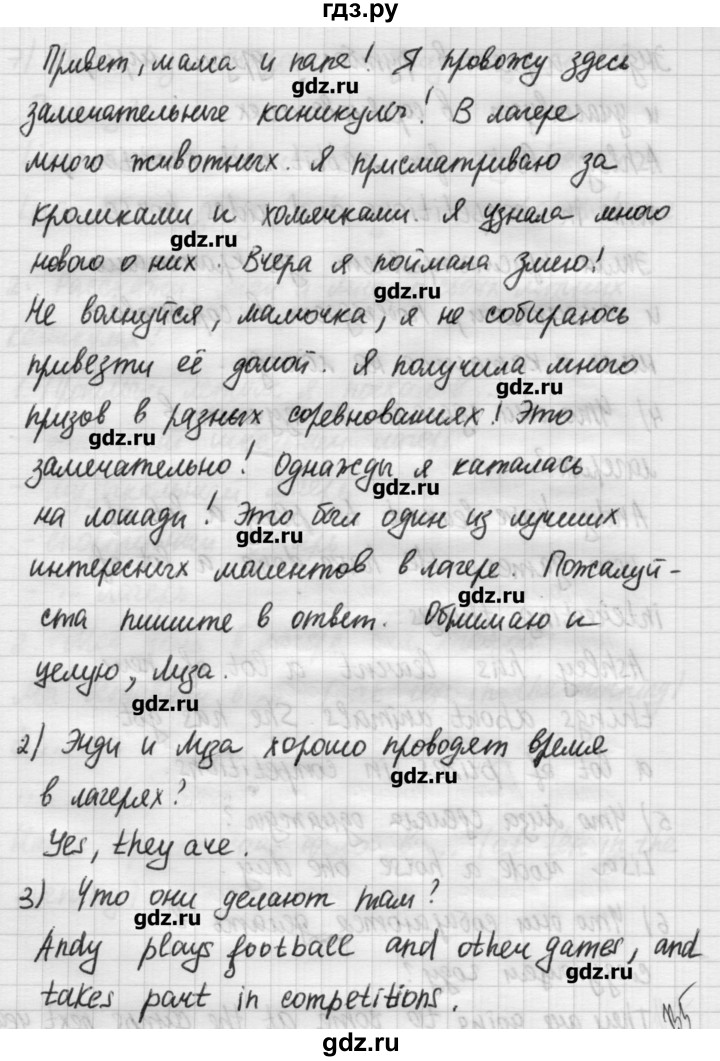 гдз.ру
Привет, мама и папа! Я провожу здесь
gdz.ru
замечательные каникулы! В лагере
gdz.ru
много животных. Я присматриваю за
кроликами и хомячками. Я узнала много
gdz.ru
нового о них. Вчера я поймала змею!
gdz.ru
Не волнуйся, мамочка, я не собираюсь
привезти её домой. Я получила много
gdz.ru
призов в разных соревнованиях! Это
gdz.ru
замечательно! Однажды я каталась
gdz.ru
на лошади! Это был один из лучших
gdz.ru
интересных моментов в лагере. Пожалуй-
gdz.ru
ста пишите в ответ. Обнимаю и
целую, Лиза.
gdz.ru
2) Энди и Лиза хорошо проводят время
gdz.ru
в лагерях?
Yes, they are.
3) Что они делают там?
gdz.ru
Andy plays football and other games, and
gdz.ru
takes part in competitions.
gdz.ru